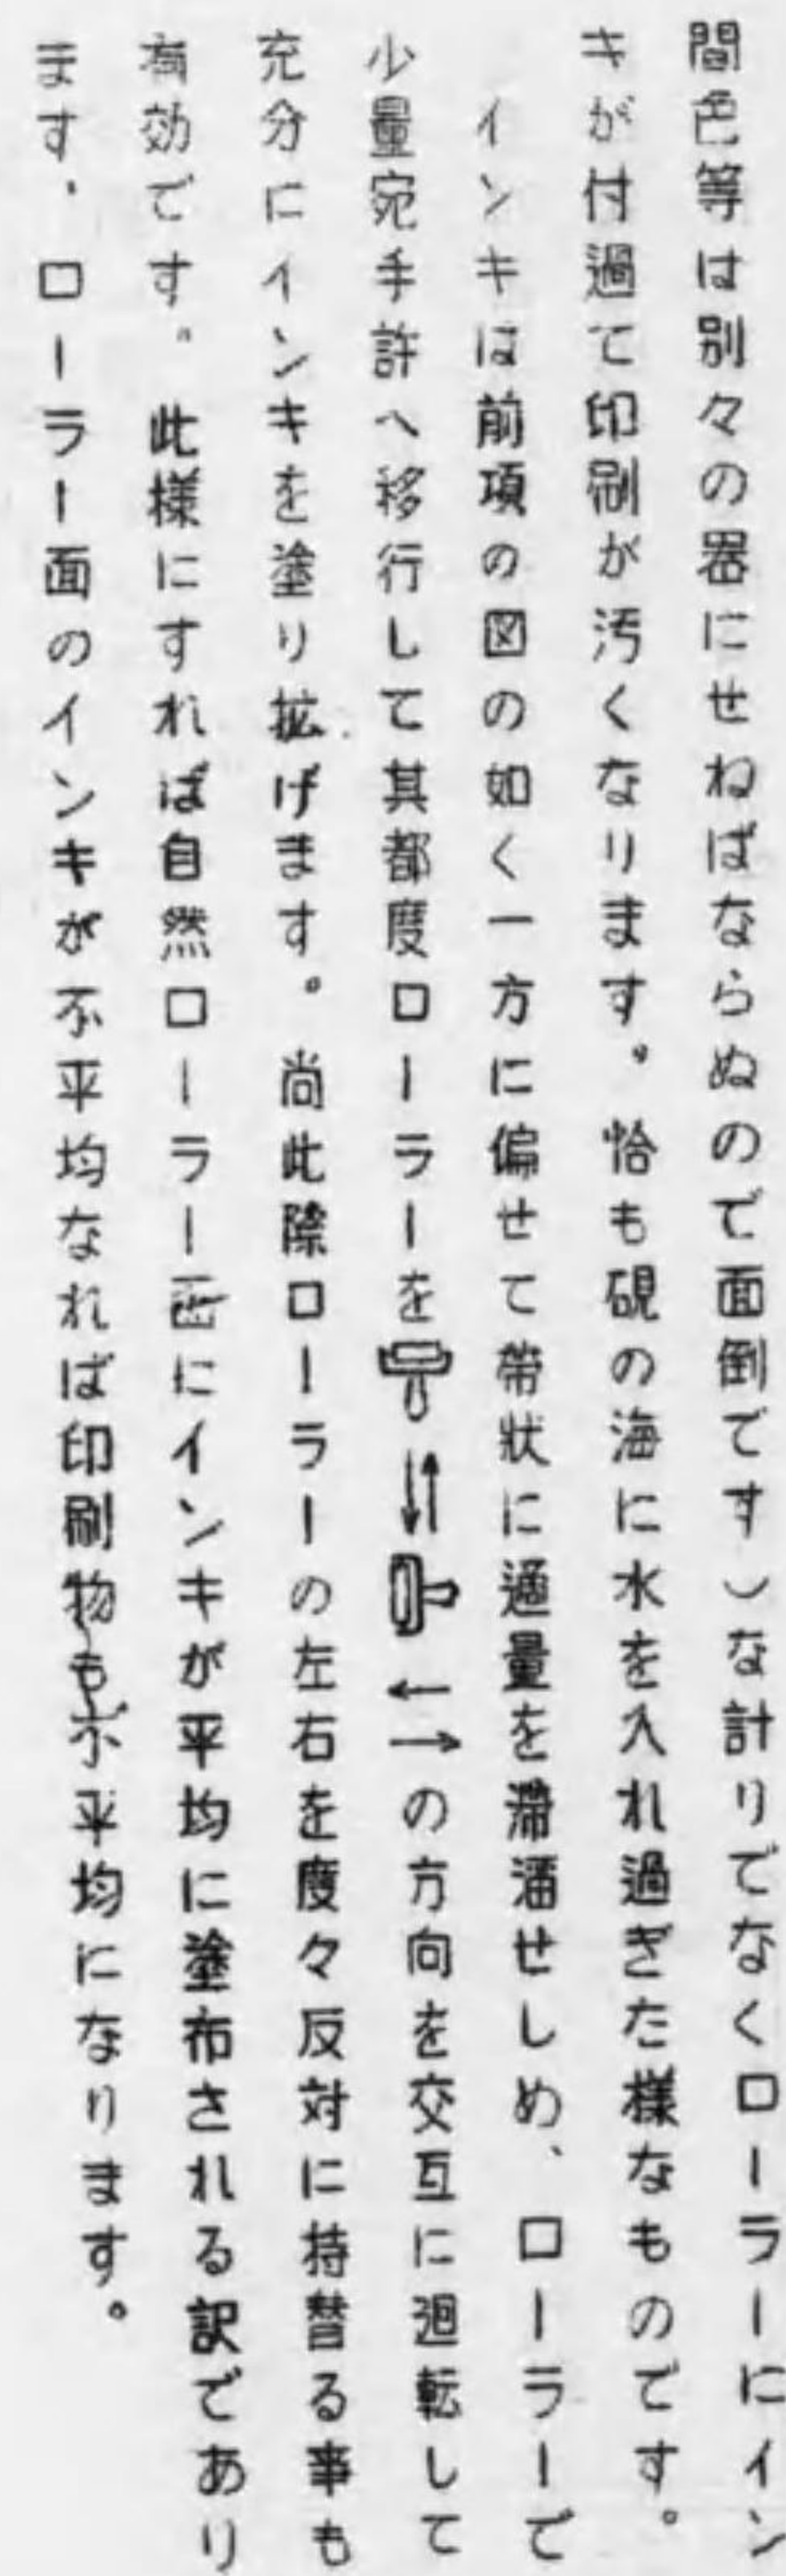 間色等は別々の器にせねばならぬので面倒です)な計りでなくローラーにイン
キが付過て印刷が汚くなります。恰も硯の海に水を入れ過ぎた様なものです。
インキは前項の図の如く一方に偏せて帶狀に適量を滯溜せしめ、ローラーで
少量宛手許へ移行して其都度ローラーを ↓↑ ← → の方向を交互に廻転して
充分にインキを塗り拡げます。尚此際ローラーの左右を度々反対に持替る事も
有効です。此様にすれば自然ローラー面にインキが平均に塗布される訳であり
ます、ローラー面のインキが不平均なれば印刷物も不平均になります。